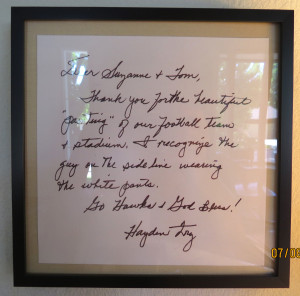 Dear Suzanne & Tom,
Thank you for the beautiful
"painting" of our football team
& stadium. I recognize the
guy on the sideline wearing
the white pants.
Go Hawks & God Bless!
Hayden Fry
07/0